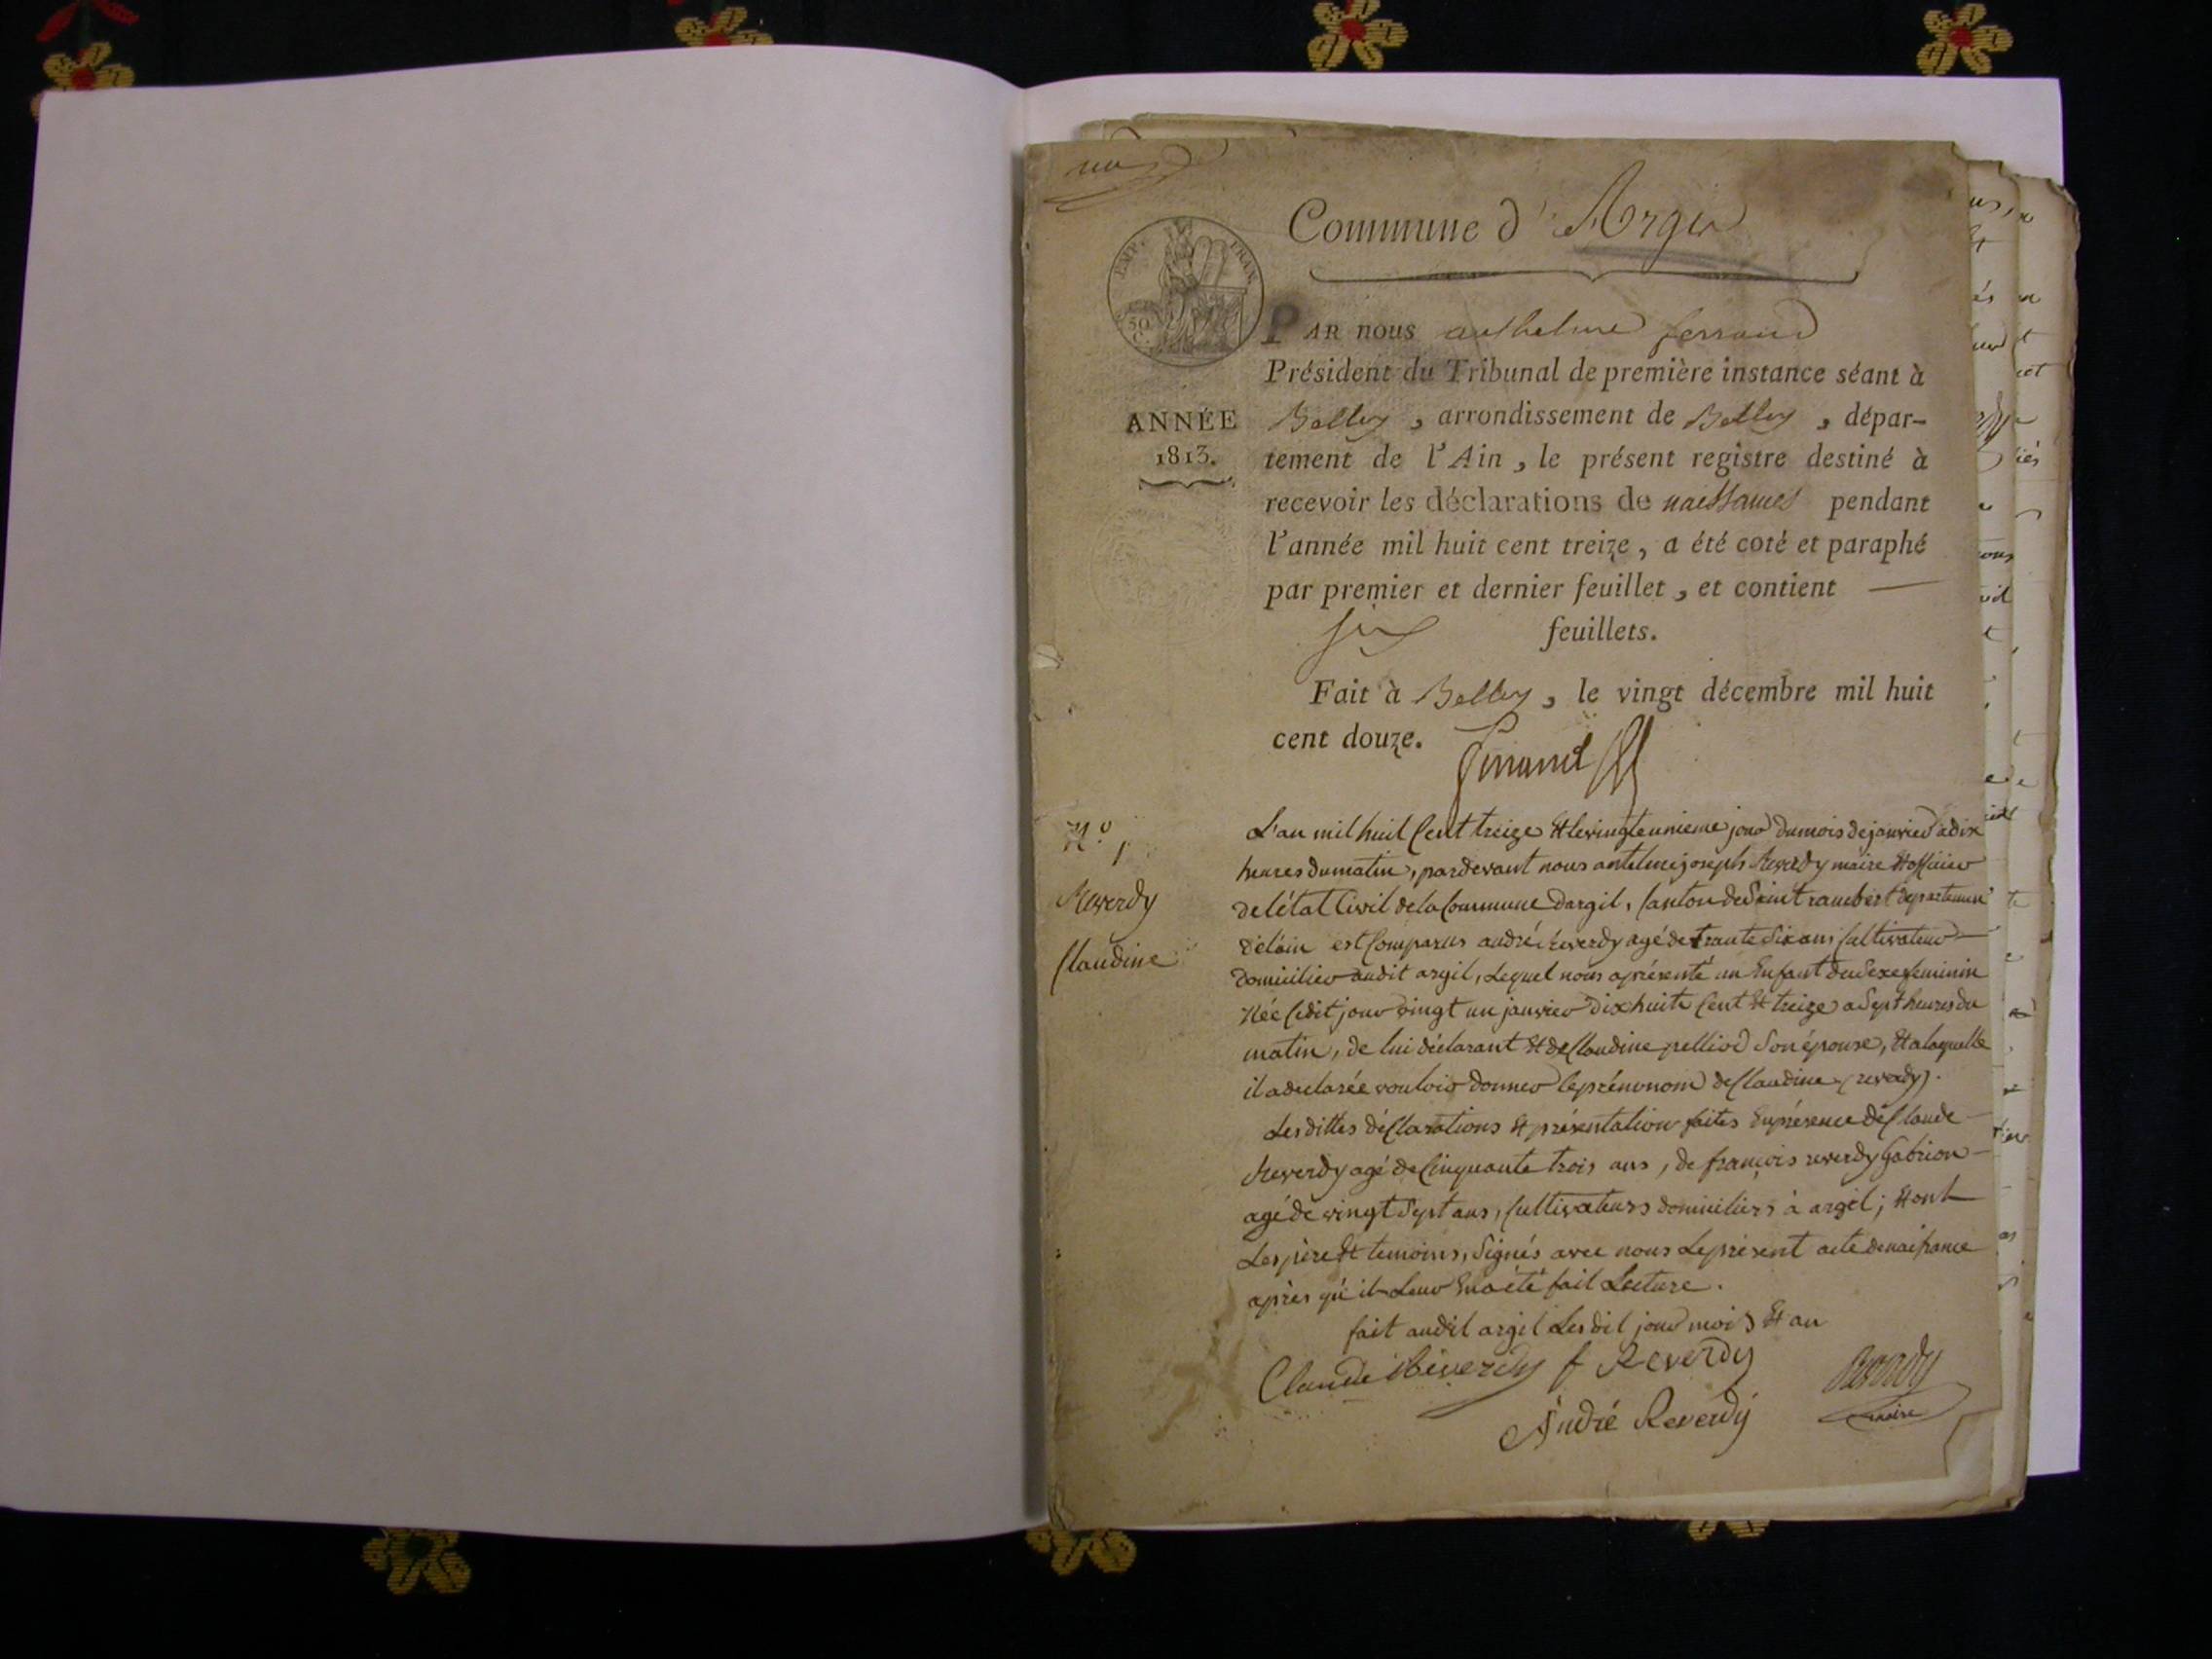 un
Commune d'Argis
EMP. FRAN.
50 C.
PAR nous anthelme ferrand
Président du Tribunal de première instance séant à
ANNÉE
1813.
Belley, arrondissement de Belley, dépar-
tement de l'Ain, le présent registre destiné à
recevoir les déclarations de naissances pendant
l'année mil huit cent treize, a été coté et paraphé
par premier et dernier feuillet, et contient
six feuillets.
Fait à Belley, le vingt décembre mil huit
cent douze.
ferrand
N.o 1
Reverdy
Claudine
L'an mil huit Cent treize Et le vingt unieme jour du mois de janvier a dix
heures du matin, pardevant nous antelme joseph Reverdy maire Et officier
de l'état Civil de la Commune dargil, Canton de Saint rambert departement
de lain est Comparus andré Reverdy agé de trante Six ans Cultivateur
domicilier audit argil, Lequel nous a présenté un Enfant du Sexe feminin
Née Cedit jour vingt un janvier dix huite Cent Et treize a Sept heures du
matin, de lui déclarant Et de Claudine pelliod Son épouse, Et a laquelle
il a declarée vouloir donner le prénonom de Claudine (reverdy).
Les dittes déClarations Et présentation faites En présence de Claude
Reverdy agé de Cinquante trois ans, de françois reverdy Gabrion
agé de vingt Sept ans, Cultivateurs domiciliers à argil; Et ont
Les père Et temoins, Signés avec nous Le présent acte de naissance
après qu'il Leur En a été fait Lecture.
fait audit argil Les dit jour mois Et an
Claude Reverdy f Reverdy Reverdy
maire
André Reverdy